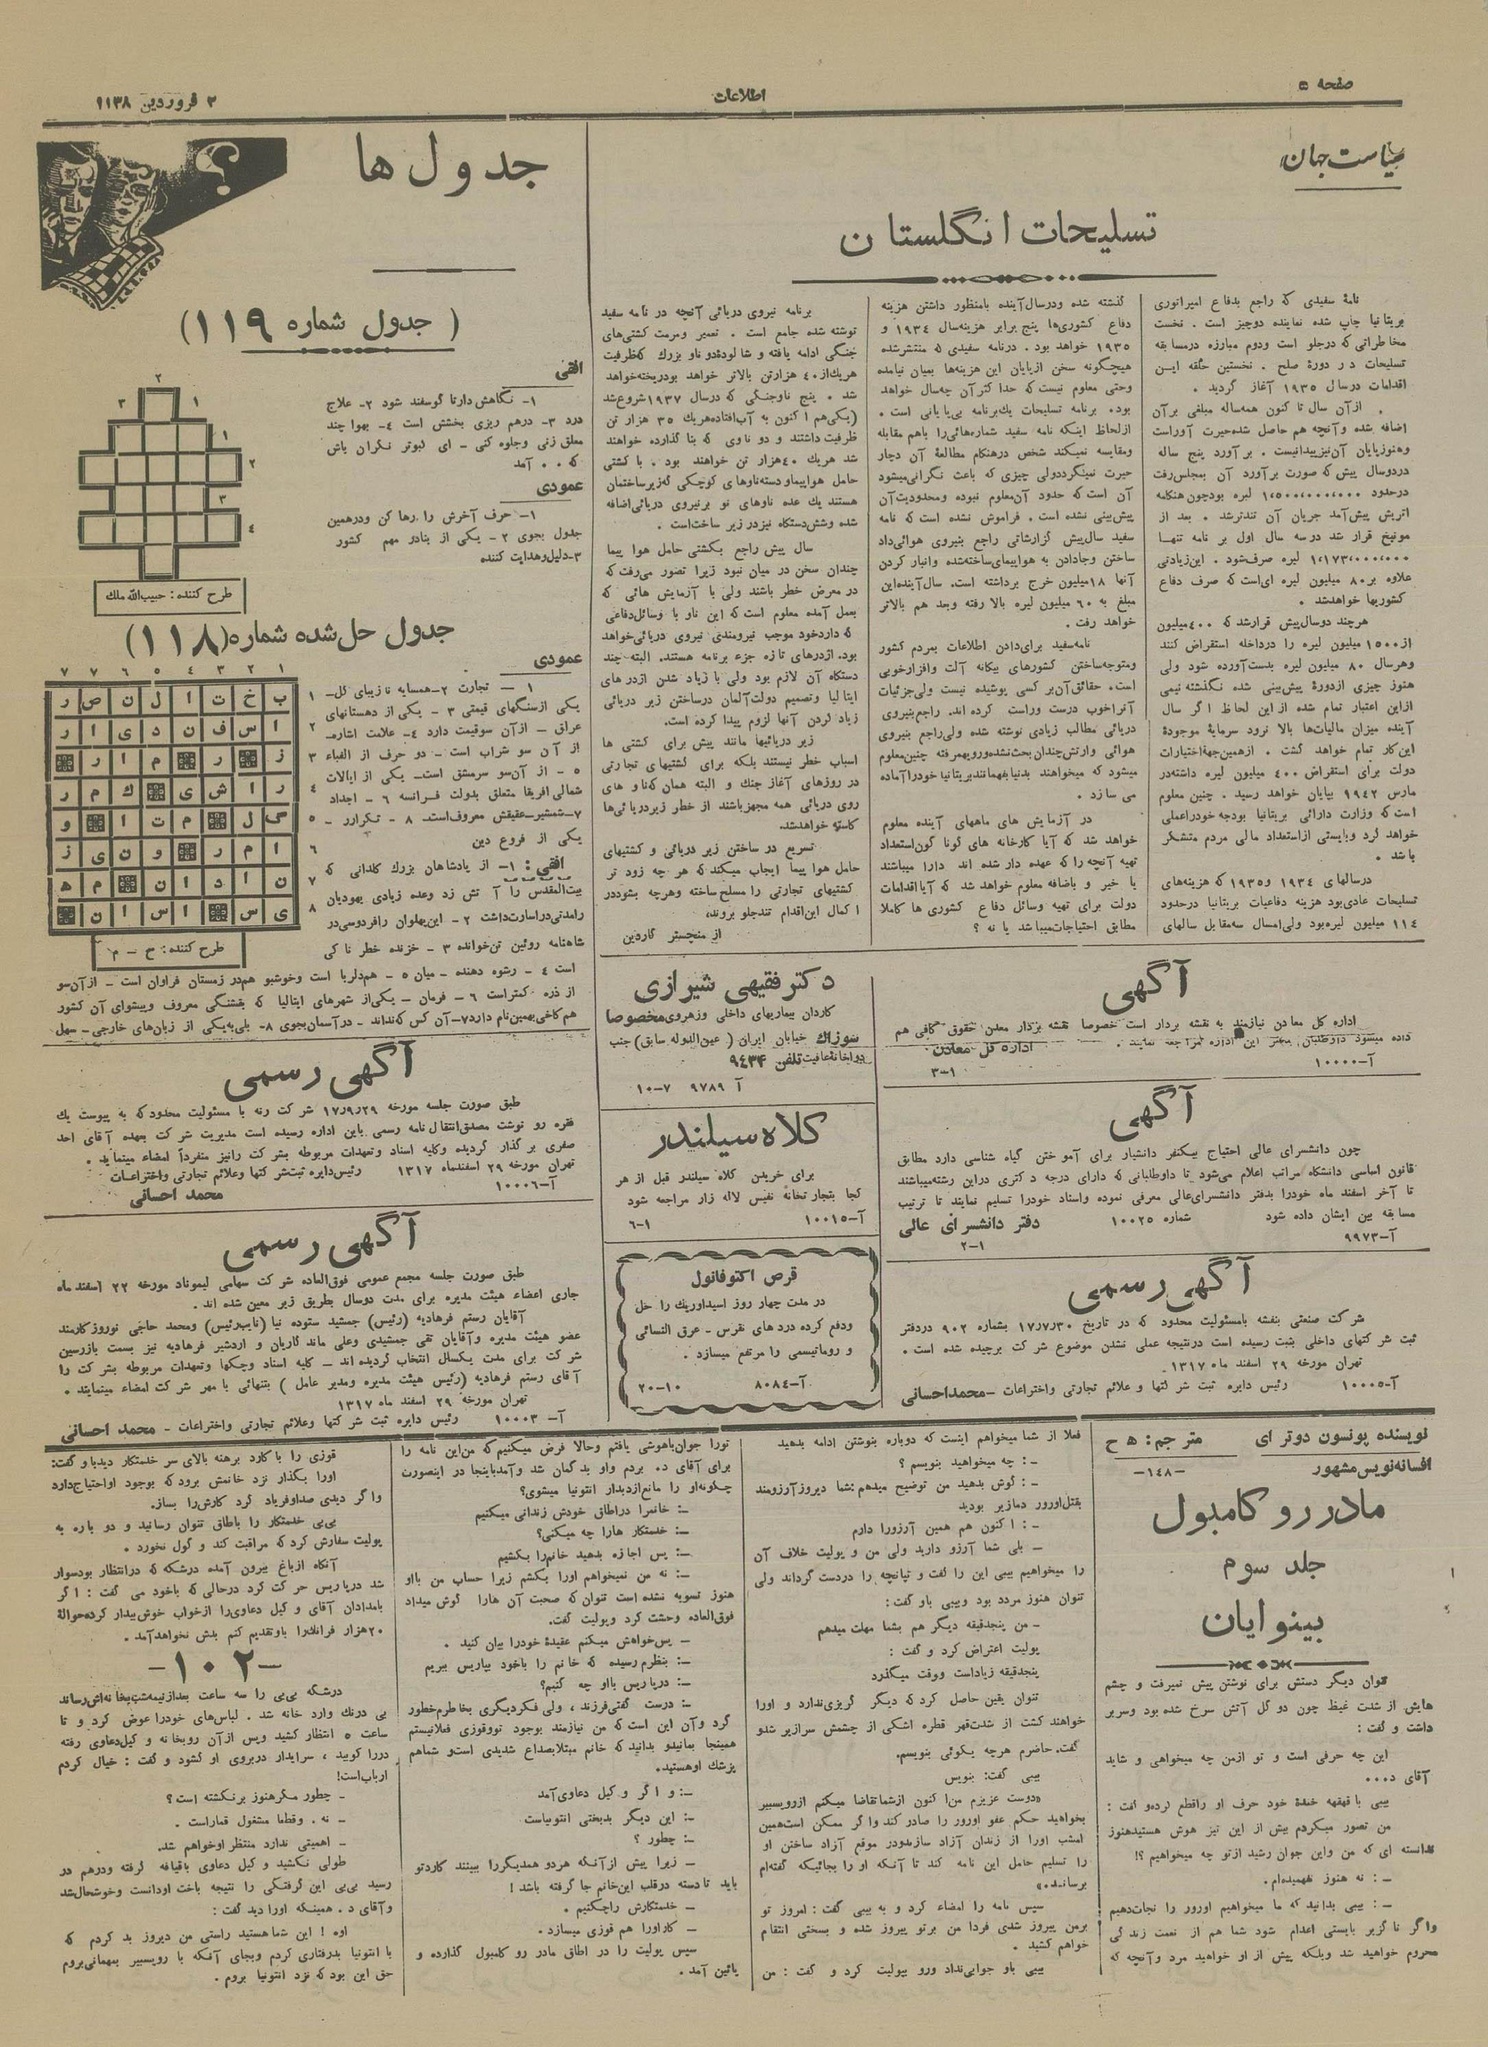 صفحه ۵
اطلاعات
۲ فروردین ۱۱۳۸
سیاست جهان
تسلیحات انگلستان
نامهٔ سفیدی که راجع بدفاع امپراتوری
بریتانیا چاپ شده نماینده دوچیز است . نخست
مخاطراتی که درجلو است ودوم مبارزه درمسابقه
تسلیحات در دورهٔ صلح . نخستین حلقه ایـن
اقدامات درسال ۱۹۳۵ آغاز گردید .
ازآن سال تا کنون همه‌ساله مبلغی برآن
اضافه شده وآنچه هم حاصل شده‌حیرت آوراست
وهنوزپایان آن‌نیزپیدانیست . برآورد پنج ساله
دردوسال پیش که صورت برآورد آن بمجلس‌رفت
درحدود ۱٬۵۰۰٬۰۰۰٬۰۰۰ لیره بودچون هنگامه
اتریش پیش‌آمد جریان آن تندترشد . بعد از
مونیخ قرار شد درسه سال اول بر نامه تنهـا
۱٬۱۷۳٬۰۰۰٬۰۰۰ لیره صرف‌شود . این‌زیادتی
علاوه بر۸۰ میلیون لیره ای‌است که صرف دفاع
کشوریها خواهدشد .
هرچند دوسال‌پیش قرارشد‌که ۴۰۰میلیون
از۱۵۰۰ میلیون لیره را درداخله استقراض کنند
وهرسال ۸۰ میلیون لیره بدست‌آورده شود ولی
هنوز چیزی ازدورهٔ پیش‌بینی شده نگذشته نیمی
ازاین اعتبار تمام شده از‌این لحاظ اگر سال
آینده میزان مالیات‌ها بالا نرود سرمایهٔ موجودهٔ
این‌کار تمام خواهد گشت . ازهمین‌جهة‌اختیارات
دولت برای استقراض ۴۰۰ میلیون لیره داشته‌در
مارس ۱۹۴۲ بپایان خواهد رسید . چنین معلوم
است‌که وزارت دارائی بریتانیا بودجه خودراعملی
خواهد کرد وبایستی ازاستعداد مالی مردم متشکر
باشد .
درسالهای ۱۹۳۴ و۱۹۳۵ که هزینه‌های
تسلیحات عادی‌بود هزینه دفاعیات بریتانیا درحدود
۱۱۴ میلیون لیره‌بود ولی‌امسال سه‌مقابل سالهای
گذشته شده ودرسال‌آینده بامنظور داشتن هزینه
دفاع کشوری‌ها پنج برابر هزینه‌سال ۱۹۳۴ و
۱۹۳۵ خواهد بود . درنامه سفیدی که منتشرشده
هیچگونه سخن ازپایان این هزینه‌ها بمیان نیامده
وحتی معلوم نیست‌که حدا کثرآن چه‌سال خواهد
بود. برنامه تسلیحات یك‌برنامه بی‌پایانی است .
ازلحاظ اینکه نامه سفید شماره‌هائی‌را باهم مقابله
ومقایسه نمیکند شخص درهنگام مطالعهٔ آن دچار
حیرت نمیگرددولی چیزی که باعث نگرانی‌میشود
آن است‌که حدود آن‌معلوم نبوده ومحدودیت‌آن
پیش‌بینی نشده است . فراموش نشده است که نامه
سفید سال‌پیش گزارشاتی راجع بنیروی هوائی‌داد
ساختن وجادادن به هواپیمای‌ساخته‌شده وانبار کردن
آنها ۱۸میلیون خرج برداشته است. سال‌آینده‌این
مبلغ به ۶۰ میلیون لیره بالا رفته وبعد هم بالاتر
خواهد رفت .
نامه‌سفید برای‌دادن اطلاعات بمردم کشور
ومتوجه‌ساختن کشورهای بیگانه آلت وافزارخوبی
است. حقائق‌آن‌بر کسی پوشیده نیست ولی‌جزئیات
آنراخوب درست وراست کرده اند. راجع‌بنیروی
دریائی مطالب زیادی نوشته شده ولی‌راجع بنیروی
هوائی وارتش‌چندان بحث‌نشده‌ورویهمرفته چنین‌معلوم
میشود که میخواهند بدنیا‌بفهمانند‌بریتانیا خودراآماده
می سازد .
در آزمایش های ماههای آینده معلوم
خواهد شد که آیا کارخانه های گونا گون‌استعداد
تهیه آنچه را که عهده دار شده اند دارا میباشند
یا خیر و باضافه معلوم خواهد شد که آیا‌اقدامات
دولت برای تهیه وسائل دفاع کشوری ها کاملا
مطابق احتیاجات‌میباشد یا نه ؟
برنامه نیروی دریائی آنچه در نامه سفید
نوشته شده جامع است . تعمیر ومرمت کشتی‌های
جنگی ادامه یافته و شالودهٔ‌دو ناو بزرك که‌ظرفیت
هریك‌از ۴۰ هزارتن بالاتر خواهد بودریخته‌خواهد
شد . پنج ناوجنگی که درسال ۱۹۳۷ شروع‌شد
(یکی‌هم اکنون به آب‌افتاده‌هریك ۳۵ هزار تن
ظرفیت داشتند و دو ناوی که بنا گذارده خواهند
شد هریك ۴۰هزار تن خواهند بود . با کشتی
حامل هواپیماو‌دسته‌ناوهای کوچکی که‌زیرساختمان
هستند یك عده ناوهای نو برنیروی دریائی‌اضافه
شده وشش‌دستگاه نیزدر زیر ساخت‌است .
سال پیش راجع بکشتی حامل هوا پیما
چندان سخن در میان نبود زیرا تصور می‌رفت که
در معرض خطر باشند ولی با آزمایش هائی که
بعمل آمده معلوم است‌که این ناو با وسائل‌دفاعی
که داردخود موجب نیرومندی نیروی دریائی‌خواهد
بود. اژدرهای تازه جزء برنامه هستند. البته چند
دستگاه آن لازم بود ولی با زیاد شدن اژدرهای
ایتالیا وتصمیم دولت‌آلمان درساختن زیر دریائی
زیاد کردن آنها لزوم پیدا کرده است.
زیر دریائیها مانند پیش برای کشتی ها
اسباب خطر نیستند بلکه برای کشتیهای تجارتی
در روزهای آغاز جنك و البته همان که‌ناو های
روی دریائی همه مجهزباشند از خطر زیردریائی‌ها
کاسته خواهدشد.
تسریع در ساختن زیر دریائی و کشتیهای
حامل هوا پیما ایجاب میکند‌که هر چه زود تر
کشتیهای تجارتی را مسلح ساخته وهرچه بشوددر
اکمال این‌اقدام تندجلو بروند،
از منچستر گاردین
جدول ها
؟
( جدول شماره ۱۱۹)
افقی
۱- نگاهش دارتا گوسفند شود ۲- علاج
درد ۳- درهم ریزی بخشش است ۴- بهوا چند
معلق زنی وجلوه کنی - ای کبوتر نگران باش
که ۰۰ آمد
عمودی
۱- حرف آخرش را رها کن ودرهمین
جدول بجوی ۲- یکی از بنادر مهم کشور
۳-دلیل‌وهدایت کننده
طرح کننده: حبیب‌الله ملك
جدول حل‌شده شماره(۱۱۸)
عمودی
۱ – تجارت ۲-همسایه نازیبای گل-
یکی ازسنگهای قیمتی ۳ - یکی از دهستانهای
عراق - ازآن سوقیمت دارد ۴- علامت اشاره-
از آن سو شراب است - دو حرف از الفباء
۵ - از آن‌سو سرمشق است- یکی از ایالات
شمالی افریقا متعلق بدولت فـرانسه ۶ - اجداد
۷-شمشیر-عقیقش معروف‌است- ۸ - تکرارر -
یکی از فروع دین
افقی: ۱- از پادشاهان بزرك کلدانی که
بیت‌المقدس را آتش زد وعده زیادی یهودیان
رامدتی‌دراسارت‌داشت ۲ - این‌پهلوان رافردوسی‌در
شاهنامه روئین تن‌خوانده ۳ - خزنده خطر نا کی
است ۴ - رشوه دهنده - میان ۵ - هم‌دلربا است وخوشبو هم‌در زمستان فراوان است - از‌آن‌سو
از ذره کمتراست ۶ - فرمان - یکی‌از شهرهای ایتالیا که بقشنگی معروف وپیشوای آن کشور
هم‌کاخی‌بهمین‌نام دارد۷-آن کس که‌نداند - در‌آسمان‌بجوی ۸- بلی‌به‌یکی از زبان‌های خارجی- سهل
۱ ۲ ۳ ۴ ۵ ۶ ۷ ۷
ب خ ت ا ل ن ص ر
ا س ف ن د ی ا ر
ز ر م ا ر
ر ا ش ی ك م ر
گ ل م ت ا و
ا م ر و ن ی ز
ن ا د ا ن م ه
ی س ا س ا ن
طرح کننده: ح - م
آگهی
اداره کل معادن نیازمند به نقشه بردار است خصوصا نقشه بردار معدن حقوق کافی هم
داده میشود داوطلبان بدفتر این اداره مراجعه نمایند .
اداره کل معادن
آ-۱۰۰۰۰
۳-۱
آگهی
چون دانشسرای عالی احتیاج بیکنفر دانشیار برای آموختن گیاه شناسی دارد مطابق
قانون اساسی دانشگاه مراتب اعلام می‌شود تا داوطلبانی که دارای درجه دکتری دراین رشته‌میباشند
تا آخر اسفند ماه خودرا بدفتر دانشسرای‌عالی معرفی نموده واسناد خودرا تسلیم نمایند تا ترتیب
مسابقه بین ایشان داده شود
شماره ۱۰۰۲۵
دفتر دانشسرای عالی
آ-۹۹۷۳
۲-۱
آگهی رسمی
شرکت صنعتی بنفشه بامسئولیت محدود که در تاریخ ۱۷٫۷٫۳۰ بشماره ۹۰۲ دردفتر
ثبت شرکتهای داخلی بثبت رسیده است درنتیجه عملی نشدن موضوع شرکت برچیده شده است .
تهران مورخه ۲۹ اسفند ماه ۱۳۱۷-
آ-۱۰۰۰۵
رئیس دایره ثبت شرکتها و علائم تجارتی واختراعات -محمداحسانی
دکترفقیهی شیرازی
کاردان بیماریهای داخلی وزهروی‌مخصوصا
سوزاك خیابان ایران ( عین‌الدوله سابق) جنب
دواخانه‌عافیت‌تلفن ۹۴۳۴
آ ۹۷۸۹ ۷-۱۰
کلاه سیلندر
برای خریدن کلاه سیلندر قبل از هر
کجا بتجارتخانه نفیس لاله زار مراجعه شود
آ-۱۰۰۱۵
۱-۶
قرص اکتوفانول
در مدت چهار روز اسیداوریك را حل
ودفع کرده درد های نقرس - عرق النسائی
و روماتیسمی را مرتفع میسازد .
آ-۸۰۸۴
۱۰-۲۰
آگهی رسمی
طبق صورت جلسه مورخه ۱۷٫۹٫۲۹ شرکت رنه با مسئولیت محدودکه به پیوست یك
فقره رو نوشت مصدق‌انتقال نامه رسمی باین اداره رسیده است مدیریت شرکت بعهده آقای احد
صفری برگذار گردیده وکلیه اسناد وتعهدات مربوطه بشرکت رانیز منفرداً امضاء مینماید .
تهران مورخه ۲۹ اسفندماه ۱۳۱۷ رئیس‌دایره ثبت‌شرکتها وعلائم تجارتی واختراعـات
آ-۱۰۰۰۶
محمد احسانی
آگهی رسمی
طبق صورت جلسه مجمع عمومی فوق‌العاده شرکت سهامی لیموناد مورخه ۲۲ اسفند ماه
جاری اعضاء هیئت مدیره برای مدت دوسال بطریق زیر معین شده اند .
آقایان رستم فرهادیه (رئیس) جمشید ستوده نیا (نایب‌رئیس) ومحمد حاجی نوروز‌کارمند
عضو هیئت مدیره وآقایان تقی جمشیدی وعلی ماند گاریان و اردشیر فرهادیه نیز بسمت بازرسین
شرکت برای مدت یکسال انتخاب گردیده اند - کلیه اسناد وچکها وتعهدات مربوطه بشرکت را
آقای رستم فرهادیه (رئیس هیئت مدیره ومدیر عامل ) بتنهائی با مهر شرکت امضاء مینمایند .
تهران مورخه ۲۹ اسفند ماه ۱۳۱۷
آ- ۱۰۰۰۳ رئیس دایره ثبت شرکتها وعلائم تجارتی واختراعات - محمد احسانی
نویسنده پونسون دوترای
مترجم: ه ح
افسانه‌نویس‌مشهور
-۱۴۸-
مادر رو کامبول
جلد سوم
بینوایان
تنوان دیگر دستش برای نوشتن پیش نمیرفت و چشم
هایش از شدت غیظ چون دو گل آتش سرخ شده بود وسربر
داشت و گفت :
این چه حرفی است و تو ازمن چه میخواهی و شاید
آقای د۰۰۰
بیبی با قهقهه خندهٔ خود حرف او راقطع کرده‌و گفت :
من تصور میکردم بیش از این تیز هوش هستیدهنوز
ندانسته ای که من واین جوان رشید ازتو چه میخواهیم ؟!
ـ : نه هنوز نفهمیده‌ام.
ـ : بیبی بدانید که ما میخواهیم اورور را نجات‌دهیم
واگر ناگزیر بایستی اعدام شود شما هم از نعمت زندگی
محروم خواهید شد وبلکه پیش از او خواهید مرد وآنچه که
فعلا از شما میخواهم اینست که دوباره بنوشتن ادامه بدهید
ـ : چه میخواهید بنویسم ؟
ـ : گوش بدهید من توضیح میدهم:شما دیروزآرزومند
بقتل‌اورور دمازیر بودید
ـ : اکنون هم همین آرزورا دارم
ـ بلی شما آرزو دارید ولی من و پولیت خلاف آن
را میخواهیم بیبی این را گفت و تپانچه را دردست گرداند ولی
تنوان هنوز مردد بود وبیبی باو گفت:
- من پنجدقیقه دیگر هم بشما مهلت میدهم
پولیت اعتراض کرد و گفت :
پنجدقیقه زیاداست ووقت میگذرد
تنوان یقین حاصل کرد که دیگر گریزی‌ندارد و اورا
خواهند کشت از شدت‌قهر قطره اشکی از چشمش سرازیر شدو
گفت. حاضرم هرچه بگوئی بنویسم.
بیبی گفت: بنویس
«دوست عزیزم من‌اکنون ازشماتقاضا میکنم ازروبسپیر
بخواهید حکم عفو اورور را صادر کند واگر ممکن است‌همین
امشب اورا از زندان آزاد سازندودر موقع آزاد ساختن او
را تسلیم حامل این نامه کند تا آنکه او را بجائیکه گفته‌ام
برساند.»
سپس نامه را امضاء کرد و به بیبی گفت : امروز تو
برمن پیروز شدی فردا من برتو پیروز شده و بسختی انتقام
خواهم کشید .
بیبی باو جوابی‌نداد ورو بپولیت کرد و گفت : من
تورا جوان‌باهوشی یافتم وحالا فرض میکنیم‌که من‌این نامه را
برای آقای د. بردم واو بدگمان شد وآمد‌باینجا در اینصورت
چگونه‌او را مانع‌ازدیدار انتونیا میشوی؟
ـ: خانمرا دراطاق خودش زندانی میکنیم
ـ: خدمتکار هارا چه میکنی؟
ـ: پس اجازه بدهید خانم‌را بکشیم
ـ: نه من نمیخواهم اورا بکشم زیرا حساب من بااو
هنوز تسویه نشده است تنوان که صحبت آن هارا گوش میداد
فوق‌العاده وحشت کرد وپولیت گفت.
ـ پس‌خواهش میکنم عقیدهٔ خودرا بیان کنید .
ـ: بنظرم رسیده که خانم را باخود بپاریس ببریم
ـ: درپاریس بااو چه کنیم؟
ـ: درست گفتی‌فرزند ، ولی فکردیگری بخاطرم‌خطور
کرد وآن این است‌که من نیازمند بوجود تووقوزی فعلانیستم
همینجا بمانیدو بدانیدکه خانم مبتلابصداع شدیدی است‌و شماهم
پزشك اوهستید.
ـ: و اگر وکیل دعاوی‌آمد
ـ: این دیگر بدبختی انتونیاست
ـ: چطور ؟
ـ زیرا پیش ازآنکه هردو همدیگررا ببینند کاردتو
باید تادسته درقلب این‌خانم جا گرفته باشد !
ـ خدمتکارش راچکنیم .
ـ کاراورا هم قوزی میسازد .
سپس پولیت را در اطاق مادر رو کامبول گذارده و
پائین آمد .
قوزی را با کارد برهنه بالای سر خدمتکار دید‌باو گفت:
اورا بگذار نزد خانمش برود‌که بوجود او‌احتیاج‌دارد
واگر دیدی صداوفریاد کرد کارش‌را بساز.
بی‌بی خدمتکار را باطاق تنوان رسانید و دو باره به
پولیت سفارش کرد‌که مراقبت کند و گول نخورد .
آنگاه ازباغ بیرون آمده درشکه که درانتظار بودسوار
شد درپاریس حرکت کرد درحالی که باخود می گفت : اگر
بامدادان آقای وکیل دعاوی‌را ازخواب خوش‌بیدار کرده‌حوالهٔ
۲۰هزار فرانك‌را باوتقدیم کنم بدش نخواهدآمد .
-۱۰۲-
درشکه بی‌بی را سه ساعت بعدازنیمه‌شب‌بخانه‌اش‌رساند
بی درنك وارد خانه شد . لباس‌های خودرا عوض کرد و تا
ساعت ۵ انتظار کشید وپس ازآن روبخانه وکیل‌دعاوی رفته
دررا کوبید ، سرایدار دربروی او گشود و گفت : خیال کردم
ارباب است!
- چطور مگرهنوز برنگشته است ؟
- نه . وقطعا مشغول قماراست .
- اهمیتی ندارد منتظر اوخواهم شد.
طولی نکشید وکیل دعاوی باقیافه گرفته ودرهم در
رسید بی‌بی این گرفتگی را نتیجه باخت اودانست وخوشحال‌شد
وآقای د . همینکه اورا دید گفت :
اوه ! این شماهستید راستی من دیروز بد کردم که
با انتونیا بدرفتاری کردم وبجای آنکه با روبسپیر بمهمانی‌بروم
حق این بودکه نزد انتونیا بروم .